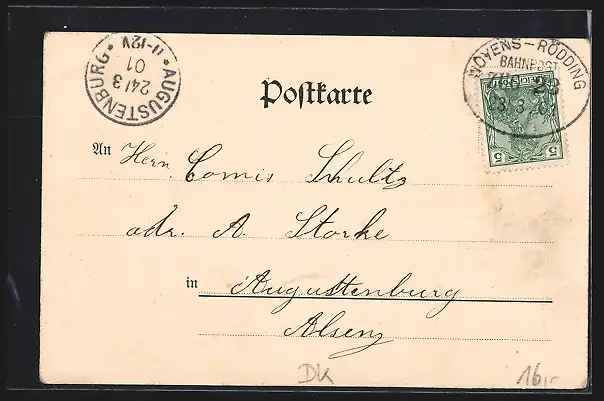 AUGUSTENBURG
11-12V
24/3
01
WOYENS-RÖDDING
BAHNPOST
23
Postkarte
5 5
An Herrn Comis Schultz
adr. A. Storke
in Augustenburg
Alsen
DK 16,-